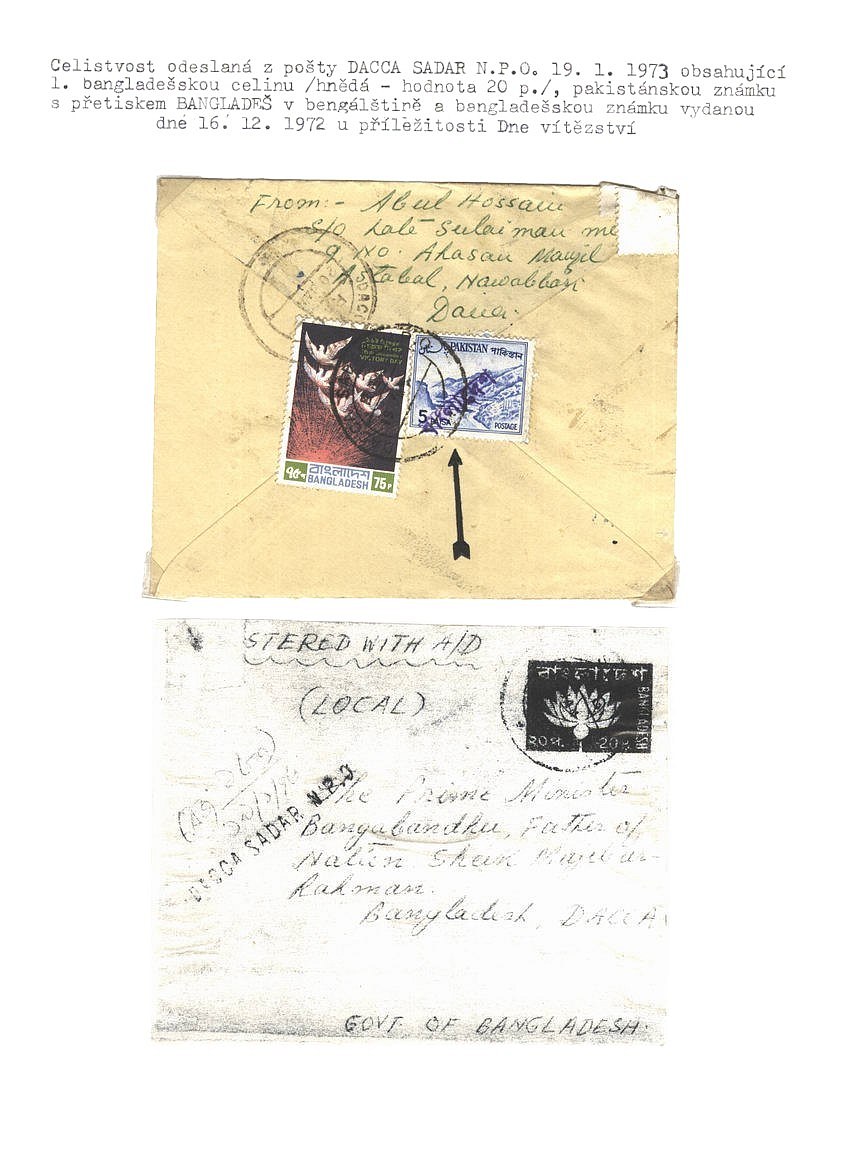 Celistvost odeslaná z pošty DACCA SADAR N.P.O. 19. 1. 1973 obsahující
1. bangladéšskou celinu /hnědá - hodnota 20 p./, pakistánskou známku
s přetiskem BANGLADEŠ v bengálštině a bangladešskou známku vydanou
dne 16. 12. 1972 u příležitosti Dne vítězství
From:- Abul Hossain
S/O Late Sulaiman
9 No. Ahasan Manjil
Astabal, Nawabbari
Dacca.
VICTORY DAY
৭৫ প বাংলাদেশ 75 P
BANGLADESH
PAKISTAN পাকিস্তান
বাংলাদেশ
5 PAISA POSTAGE
STERED WITH A/D
(LOCAL)
বাংলাদেশ
BANGLADESH
২০প. 20P.
DACCA SADAR N.P.O
The Prime Minister
Bangabandhu, Father of
Nation Sheik Mujibur
Rahman.
Bangladesh, DACCA
GOVT OF BANGLADESH.